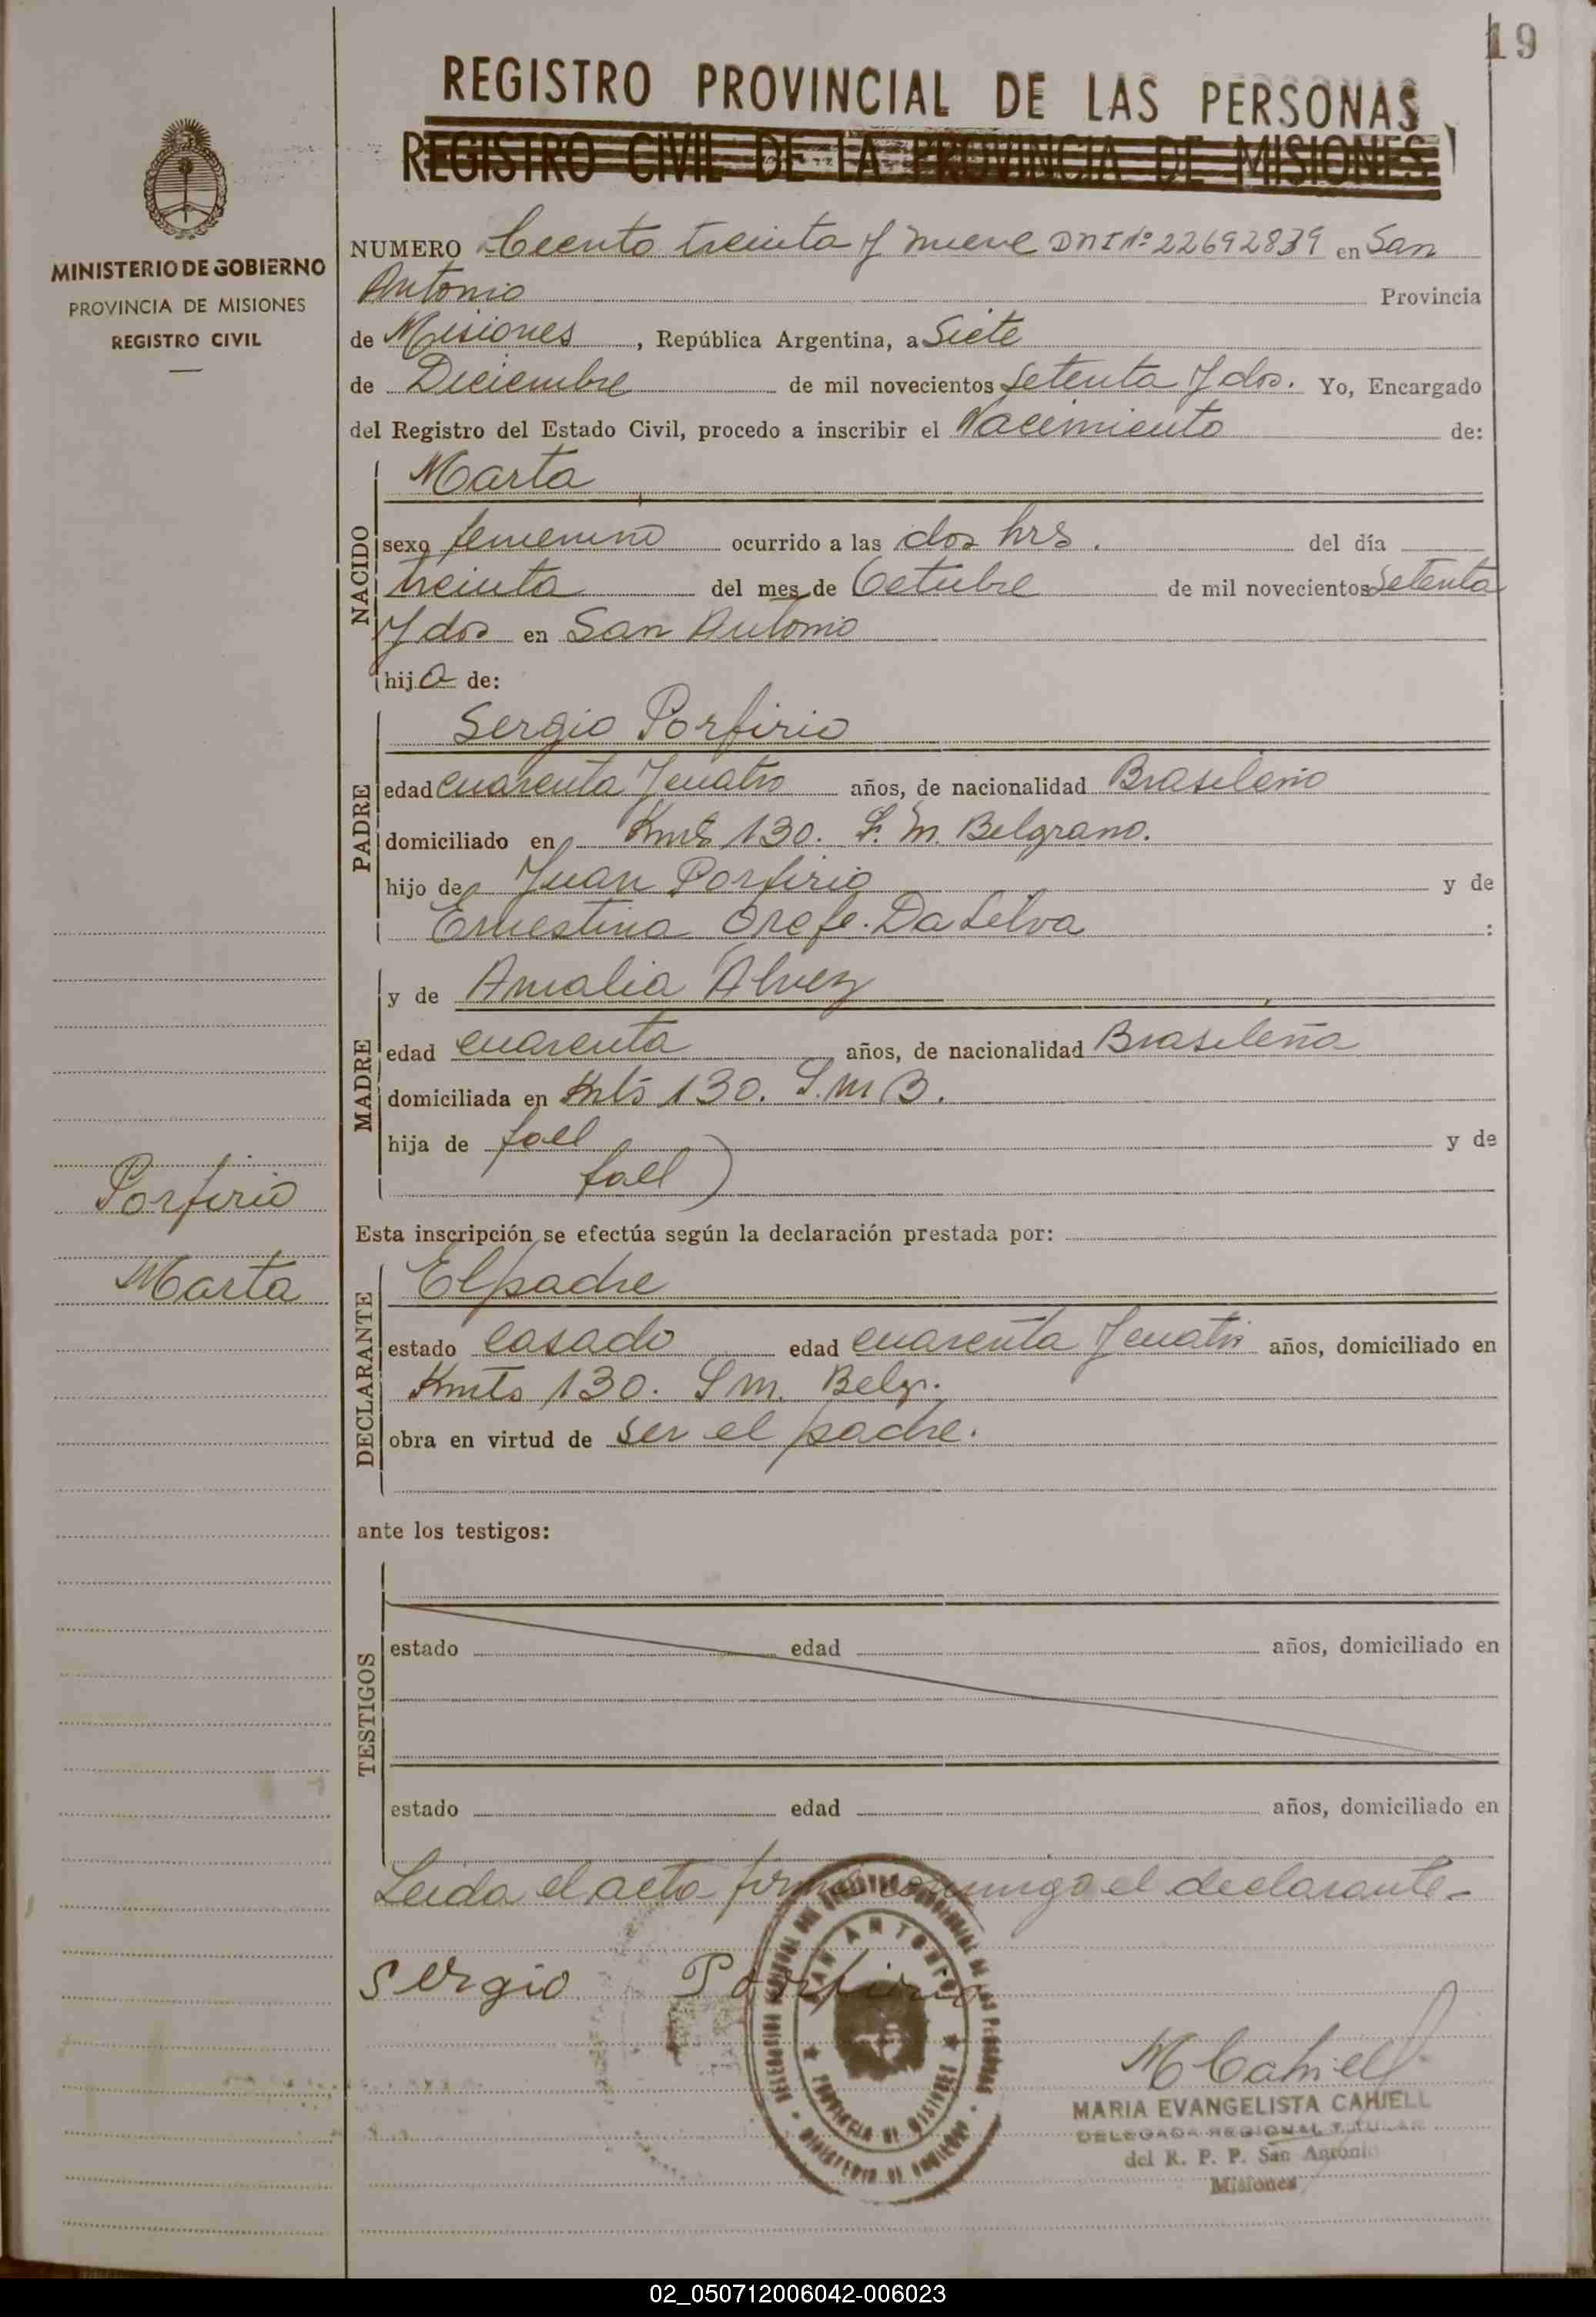 19
REGISTRO PROVINCIAL DE LAS PERSONAS
REGISTRO CIVIL DE LA PROVINCIA DE MISIONES
MINISTERIO DE GOBIERNO
PROVINCIA DE MISIONES
REGISTRO CIVIL
NUMERO Ciento treinta y nueve DNI Nº 22692839 en San
Antonio Provincia
de Misiones, República Argentina, a Siete
de Diciembre de mil novecientos setenta y dos. Yo, Encargado
del Registro del Estado Civil, procedo a inscribir el Nacimiento de:
NACIDO
Marta
sexo femenino ocurrido a las dos hrs. del día
treinta del mes de Octubre de mil novecientos setenta
y dos en San Antonio
hija de:
PADRE
Sergio Porfirio
edad cuarenta y cuatro años, de nacionalidad Brasileño
domiciliado en Kmts 130. S. M. Belgrano.
hijo de Juan Porfirio y de
Ernestina Da Silva :
MADRE
y de Amalia Alvez
edad cuarenta años, de nacionalidad Brasileña
domiciliada en Kmts 130. S. M B.
hija de fall y de
fall)
Porfirio
Marta
Esta inscripción se efectúa según la declaración prestada por:
DECLARANTE
El padre
estado casado edad cuarenta y cuatro años, domiciliado en
Kmts 130. S M. Belgr.
obra en virtud de ser el padre.
ante los testigos:
TESTIGOS
estado edad años, domiciliado en
estado edad años, domiciliado en
Leida el acta firma conmigo el declarante-
Sergio Porfirio
SAN ANTONIO
PROVINCIA DE MISIONES
MINISTERIO DE GOBIERNO
M Cahiell
MARIA EVANGELISTA CAHIELL
DELEGADA REGIONAL TITULAR
del R. P. P. San Antonio
Misiones
02_050712006042-006023